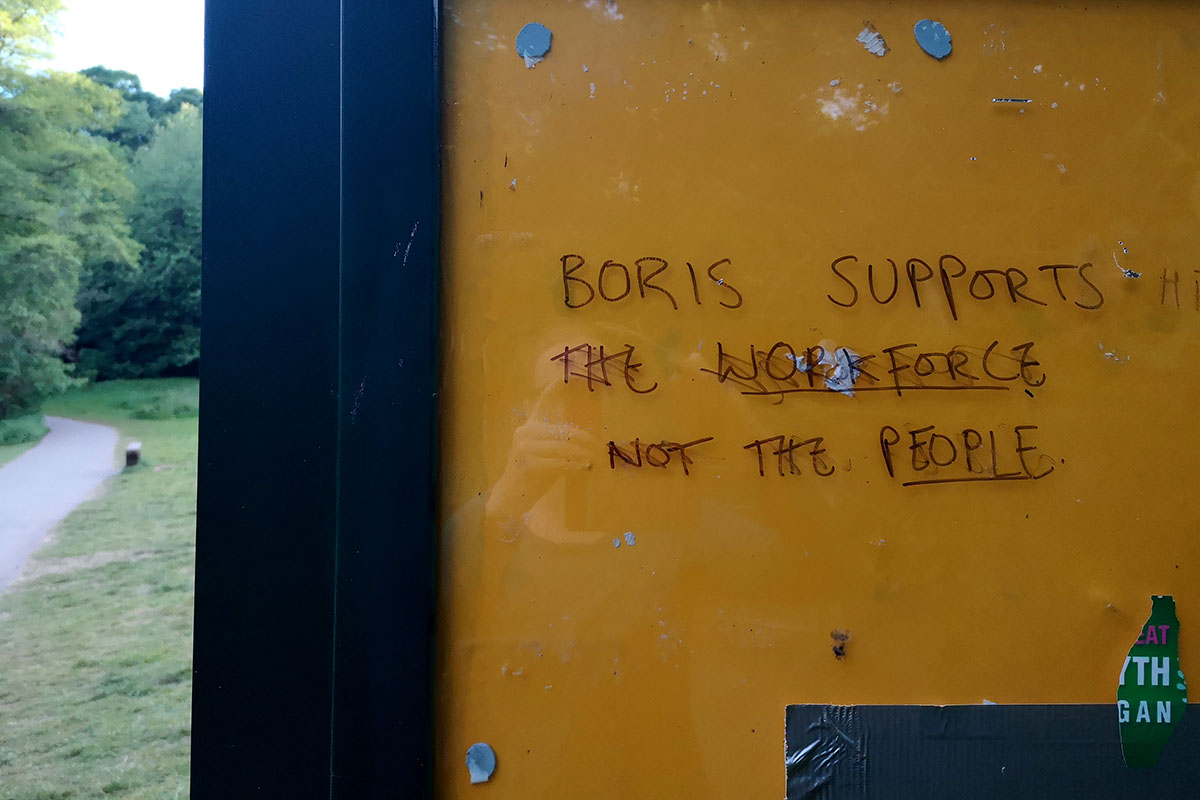 BORIS SUPPORTS HI
THE WORKFORCE
NOT THE PEOPLE.
EAT
YTH
GAN